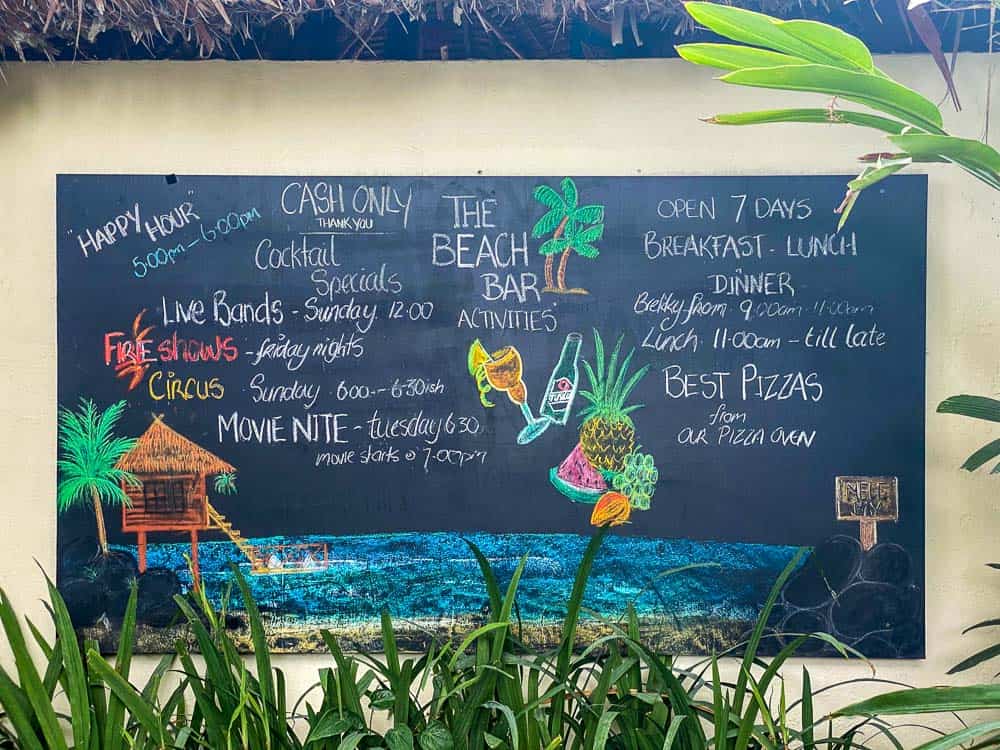 "HAPPY HOUR"
5:00pm - 6:00pm
CASH ONLY
THANK YOU
Cocktail
Specials
LIVE BANDS - Sunday 12:00
FIRE shows - friday nights
CIRCUS Sunday 6:00 - 6:30ish
MOVIE NITE - tuesday 6:30
movie starts @ 7:00pm
THE
BEACH
BAR
ACTIVITIES
OPEN 7 DAYS
BREAKFAST - LUNCH
DINNER
Brekky from 9:00am - 11:00am
Lunch 11:00am - till late
BEST PIZZAS
from
OUR PIZZA OVEN